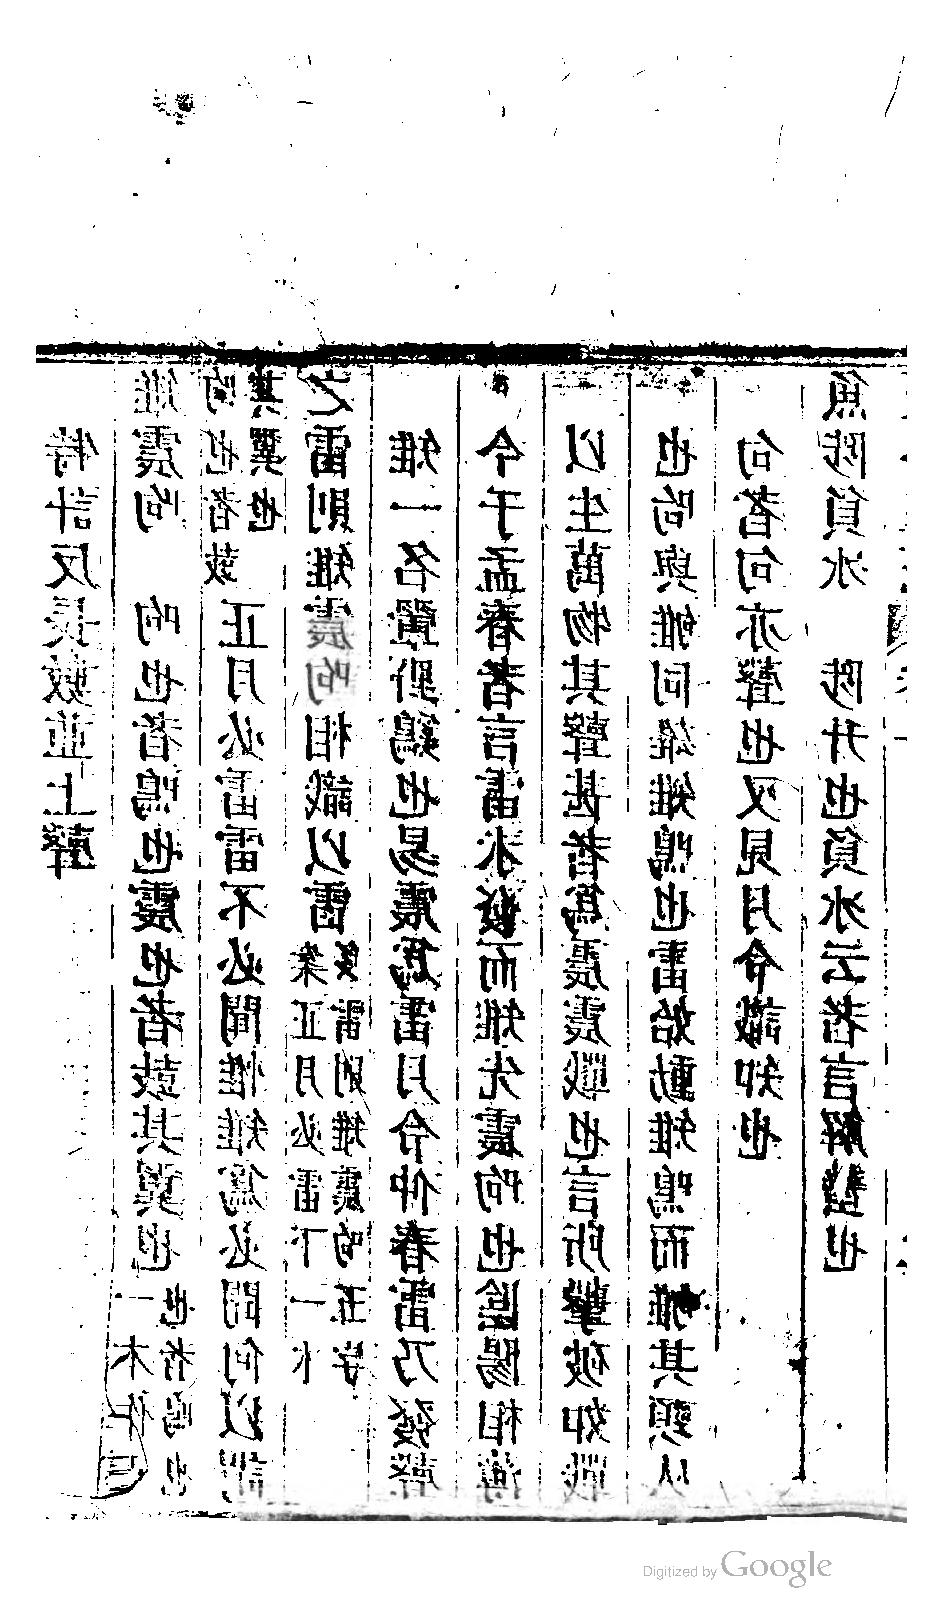 特計反長數並上聲
雉震呴　呴也者鳴也震也者鼓其翼也一本作也者鳴也
呴也者鼓其翼也正月必雷雷不必聞惟雉爲必聞何以謂
之雷則雉震呴相識以雷案正月必雷下一本多雷則雉震呴五字
雉一名野鷄也易震爲雷月令仲春雷乃發聲
今于孟春者言雷未發而雉先震呴也陰陽相薄
以生萬物其聲甚者爲震震戰也言所擊破如戰
也呴與雊同雄雉鳴也雷始動雉鳴而雊其頸从
句者句亦聲也又見月令識知也
魚陟負冰　陟升也負冰云者言解蟄也
Digitized by Google